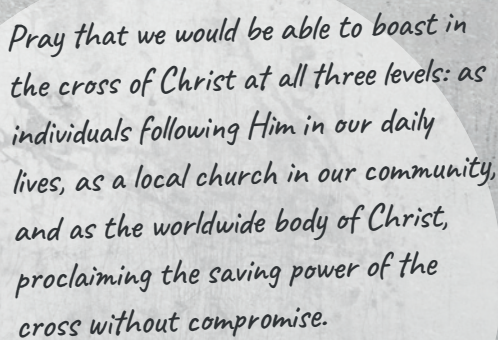 Pray that we would be able to boast in
the cross of Christ at all three levels: as
individuals following Him in our daily
lives, as a local church in our community,
and as the worldwide body of Christ,
proclaiming the saving power of the
cross without compromise.